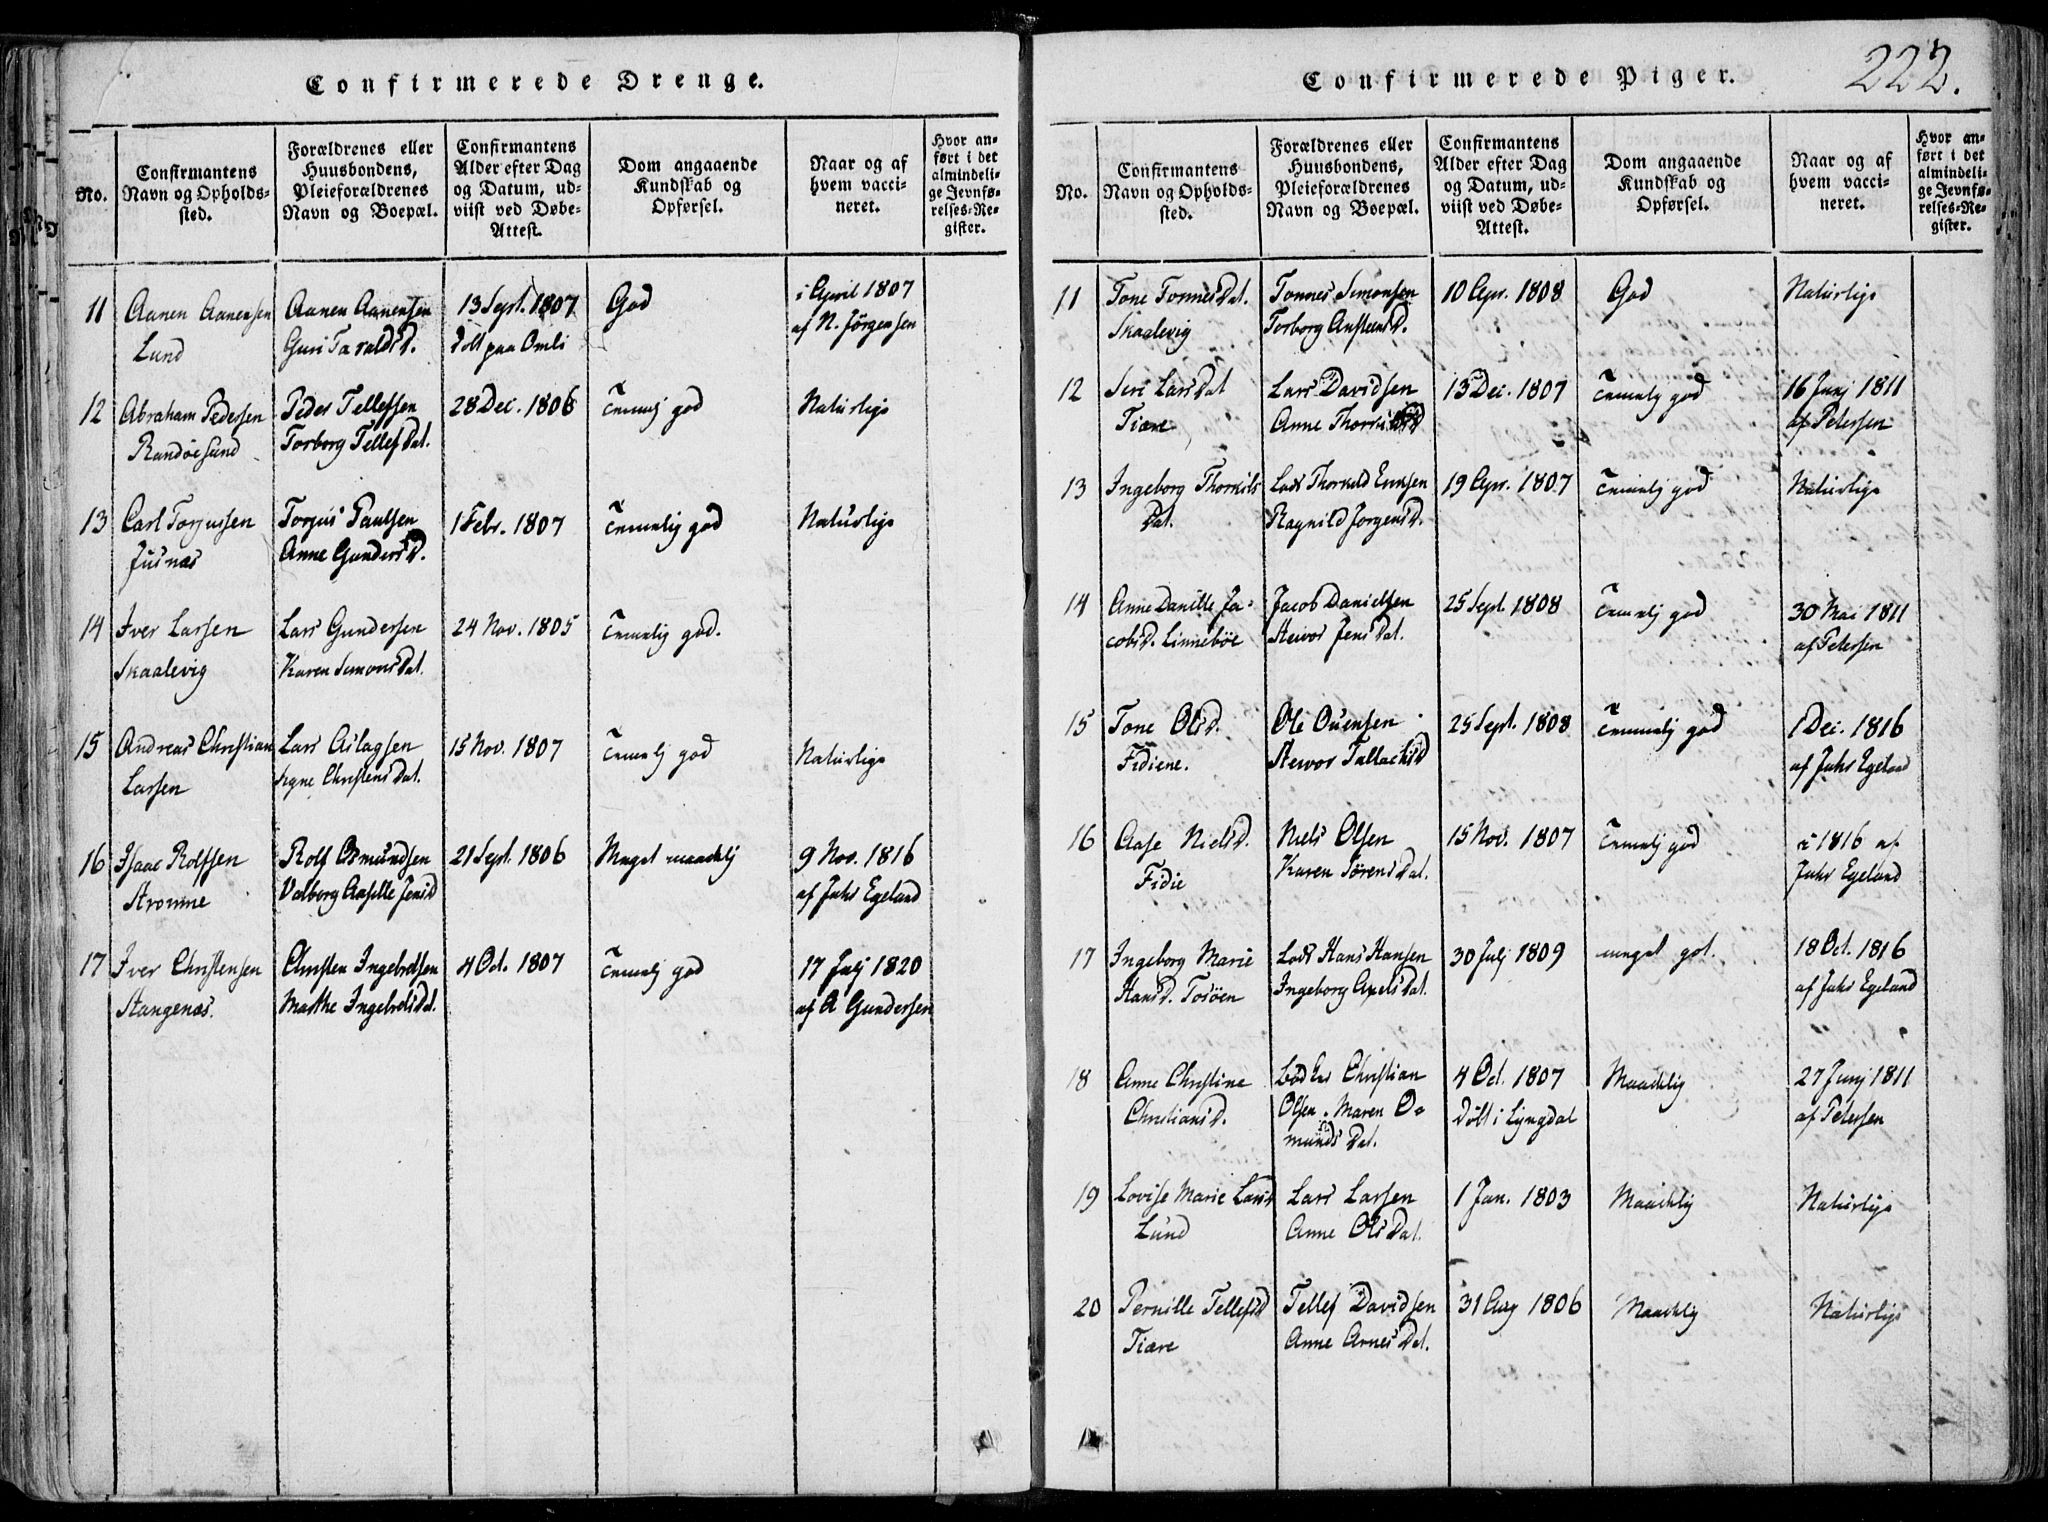 Confirmerede Drenge.
No.
Confirmantens
Navn og Opholds-
sted.
Forældrenes eller
Huusbondens,
Pleieforældrenes
Navn og Boepæl.
Confirmantens
Alder efter Dag
og Datum, ud-
viist ved Døbe-
Attest.
Dom angaaende
Kundskab og
Opførsel.
Naar og af
hvem vacci-
neret.
Hvor an-
ført i det
almindeli-
ge Jevnfø-
relses-Re-
gister.
11 Aanen Aanensen Aanen Aanensen 13 Sept. 1807 God i April 1807
Lund Guri Taralds D. Döbt paa Omli af N. Jörgensen
12 Abraham Pedersen Peder Tellefsen 28 Dec. 1806 Temlj god Naturlige
Randöesund Torborg Tellefs Dat.
13 Carl Torjussen Torjus Paulsen 1 Febr. 1807 Temelig god Naturlige
Jusnæs Anne Gunders D.
14 Iver Larsen Lars Gundersen 24 Nov. 1805 Temelig god.
Skaalevig Karen Simons Dat.
15 Andreas Christian Lars Aslagsen 15 Nov. 1807 Temelj god Naturlige
Larsen Signe Christens Dat.
16 Isaac Rolfsen Rolf Osmundsen 21 Sept. 1806 Meget maadelj 9 Nov. 1816
Stromme Valborg Jens D af Jahs Egeland
17 Iver Christensen Christen Ingebretsen 4 Oct. 1807 Temelj god 17 Julj 1820
Stangenæs. Marthe Ingebrets Dat. af A Gundersen
222.
Confirmerede Piger.
No.
Confirmantens
Navn og Opholds-
sted.
Forældrenes eller
Huusbondens,
Pleieforældrenes
Navn og Boepæl.
Confirmantens
Alder efter Dag
og Datum, ud-
viist ved Døbe-
Attest.
Dom angaaende
Kundskab og
Opførsel.
Naar og af
hvem vacci-
neret.
Hvor an-
ført i det
almindeli-
ge Jevnfø-
relses-Re-
gister.
11 Tone Tonnes Dat. Tonnes Simonsen 10 Apr. 1808 God Naturlige
Skaalevig Torborg Ansteens D.
12 Siri Lars Dat Lars Davidsen 13 Dec. 1807 Temelj god 16 Junj 1811
Tiære Anne af Petersen
13 Ingeborg Thorkils Lods Thorkild Evensen 19 Apr. 1807 Temelj god Naturlige
Dat. Ragnild Jorgens D.
14 Anne Danille Ja- Jacob Danielsen 25 Sept 1808 Temelj god 30 Mai 1811
cobs D. Linneböe Steivor Jens Dat. af Petersen
15 Tone Ols D. Ole Ouensen 25 Sept. 1808 Temelj god 1 Dec. 1816
Fidiene. Steivor Tallachs D af Jahs Egeland
16 Aase Niels D. Niels Olsen 15 Nov. 1807 Temelj god i 1816 af
Fidie Karen Sörens Dat. Jahs Egeland
17 Ingeborg Marie Lods Hans Hansen 30 Julj 1809 meget got. 18 Oct. 1816
Hans D. Tosöen Ingeborg Axels Dat. af Jahs Egeland
18 Anne Christine Christian 4 Oct. 1807 Maadelig 27 Junj 1811
Christians D. Olsen. Maren Os- Döbt i Lyngdal af Petersen
munds Dat.
19 Lovise Marie Lars D Lars Larsen 1 Jan. 1803 Maadelig Naturlige
Lund Anne Ols Dat.
20 Pernille Tellefs D Tellef Davidsen 31 Aug 1806 Maadelig Naturlige
Tiære Anne Arnes Dat.